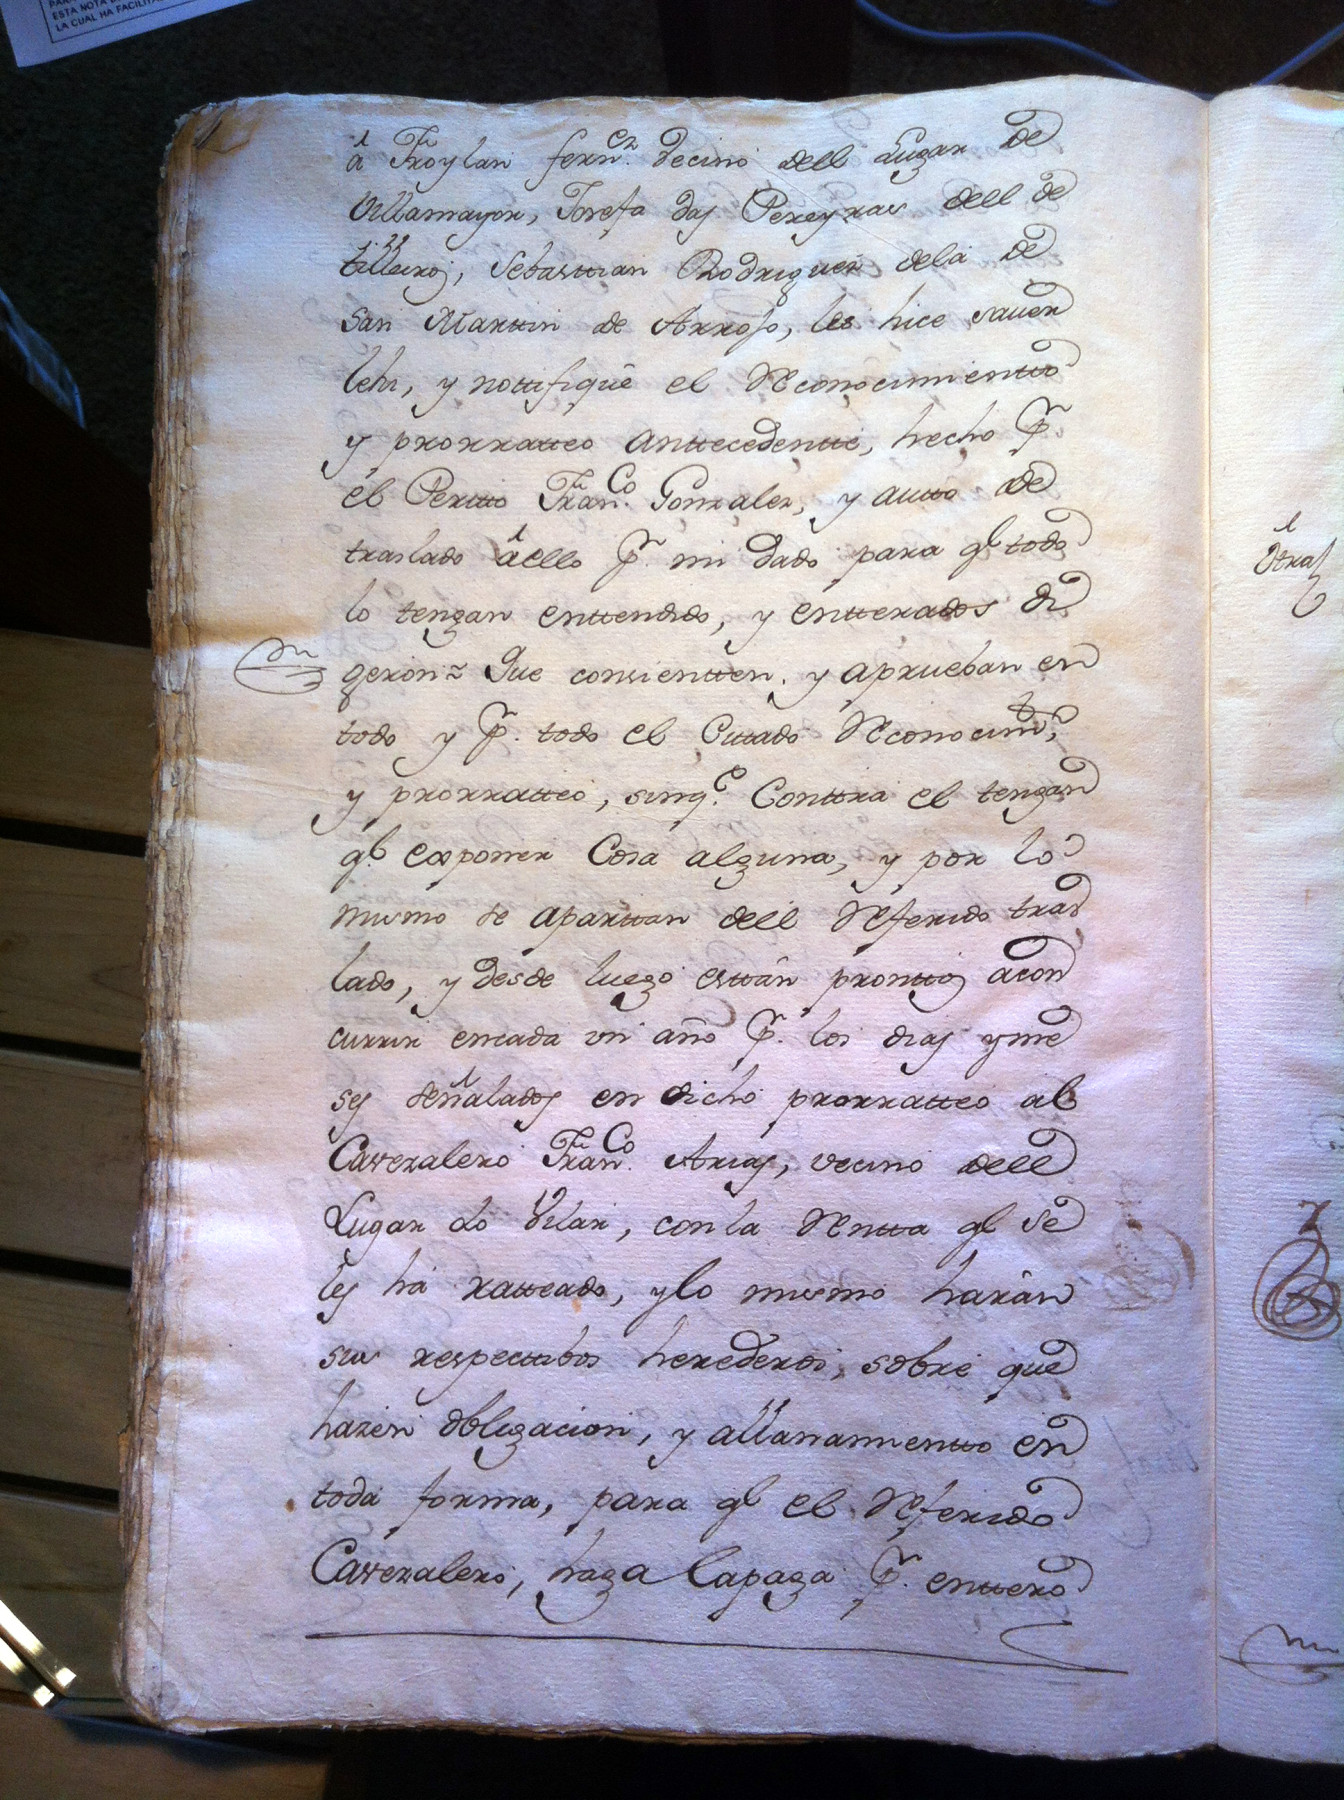 PARA
ESTA NOTA
LA CUAL HA FACILITA
â Froylan fern.ez Vecino dell Lugar de
Villamayor, Josefa das Pereyras dell de
tilleiros, Sebasttian Rodriguez dela de
San Marttin de Arrojo, les hice saver
lehi, y nottifiquê el Reconocimientto
y prorratteo anttecedentte, hecho pr
el Peritto Fran.co Gonzalez, y autto de
traslado âello pr. mi dado para q.e todo
lo tengan enttendido, y entterados di
geron~ Que consientten. y aprueban en
todo y pr. todo el Cittado Reconocim.to,
y prorratteo, sinq.e Conttra el tengan
q.e exponer Cosa alguna, y por lo
mismo se aparttan dell Referido tras
lado, y desde luego esttân pronttos acon
currir encada un año pr. los dias yme
ses señalados en dicho prorratteo al
Cavezalero Fran.co Arias, vecino dell
Lugar do Vilar, con la Rentta q.e se
les hâ ratteado, ylo mismo harân
sus respecttibos herederos, sobre que
hazen obligacion, y allanamientto en
toda forma, para q.e el Referido
Cavezalero, haga lapaga pr. enttero
otras